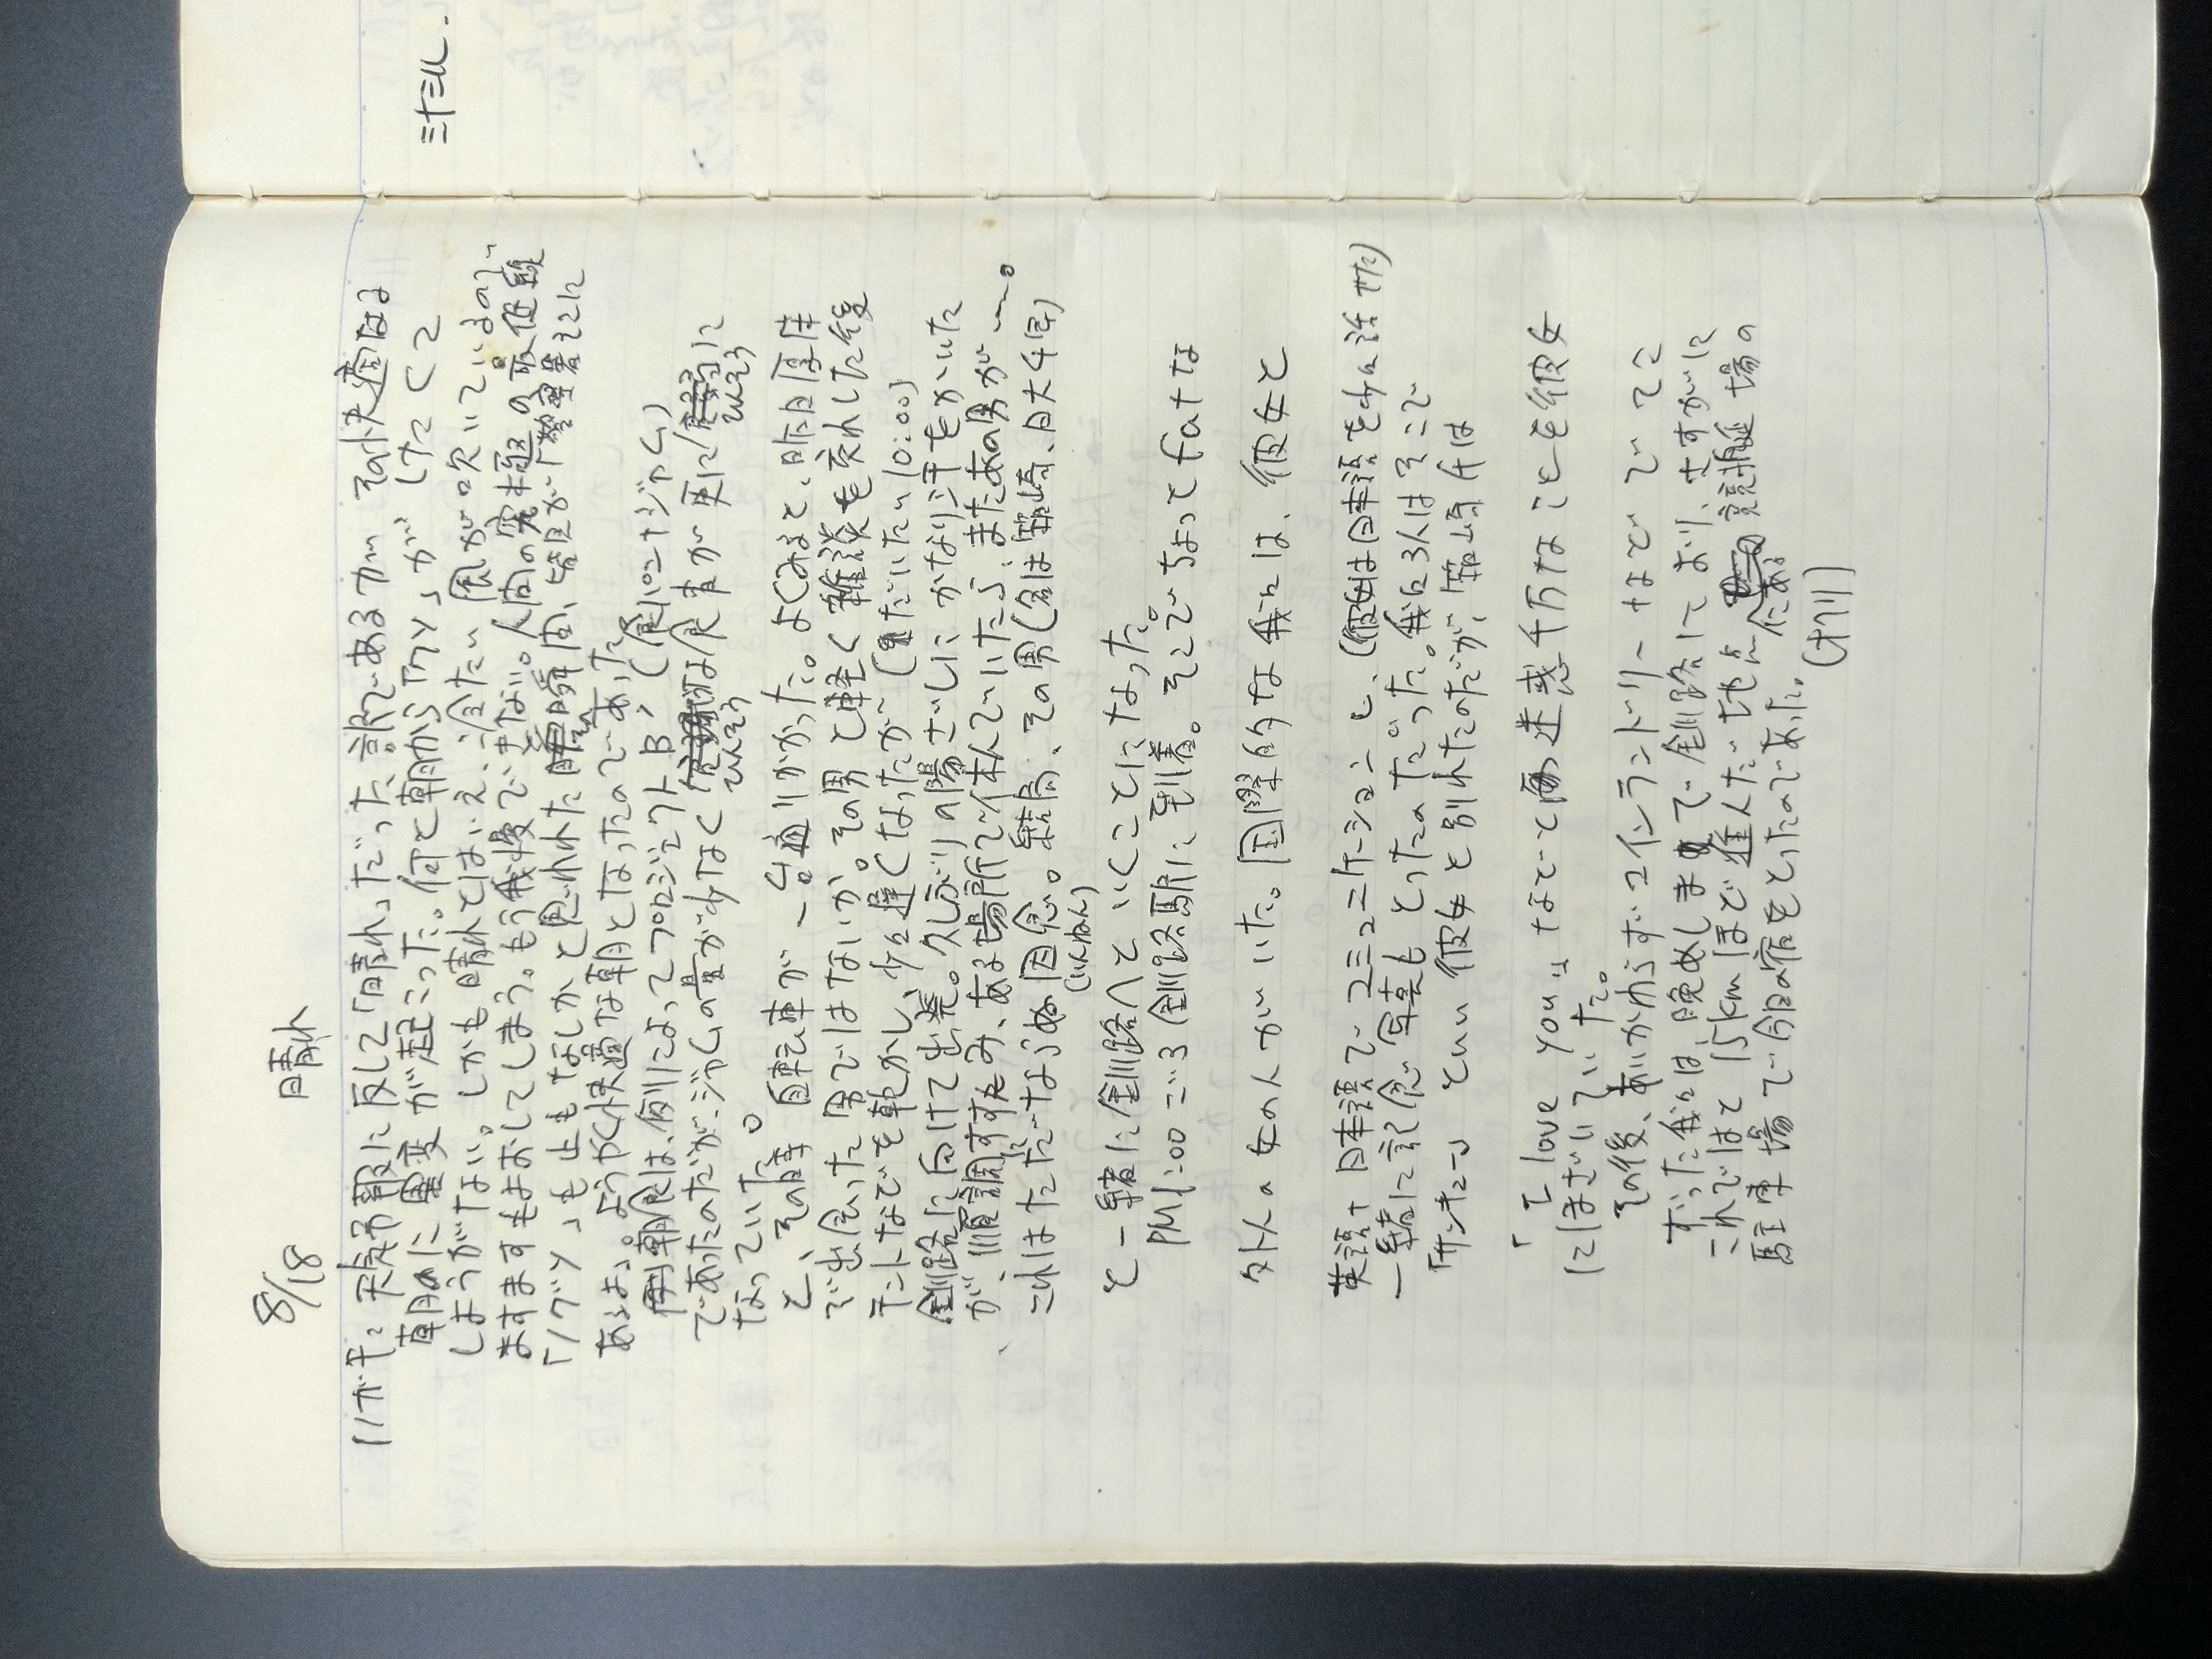 8/18 晴れ
(1がキ) 天気予報に反して「晴れ」だった訳であるが その快適なる
朝のに異変が起こった。何と朝から「ケン」が けたくて
しょうがない。しかも晴れとはいえ、冷たい風が吹いているので
ますますもよおしてしまう。もう我慢できない。人間の究極の最低最
「ノグソ」も止もなしかと思われた瞬間、皆目が「警察署そこに
あるよ」。ようやく快適な朝となったのであった。
朝食は、例によってプロジェクトB,(食パン+ジャム)
であったのだが、ジャムの量が少なく な食事が更に に
ひんそう ひんそう
なっていた。
と、その時 自転車が一台通りかかった。よくみると、昨日厚岸
で出会った男ではないか。その男と軽く雑談を交れした後
テントなどを乾かし、少々遅くなったが (だいたい10:00)
釧路に向けて出発。久しぶりの陽ざしに かなり汗をかいた
が、順調にすすみ、ある場所で休んでいたら、またあの男が…。
これはただならぬ因念。結局、その男(名は箱崎、日大4年)
(いんねん)
と一緒に釧路へといくことになった。
PM1:00ごろ釧路駅に到着。そこでちょって fat な
外人の女の人がいた。国際的な我らは、彼女と
英語+日本語でコミュニケーションし、(彼女は日本語を少々話せた)
一緒に記念写真もとったのだった。我ら3人はそこで
「サンキュー」といい彼女と別れたのだが、箱崎氏は
「I love you」などと迷惑千万なことを彼女
にほざいていた。
その後、あいかわらずコインランドリーなどでてこ
ずった我らは、晩めしまで釧路にており、さすがに
これではと15kmほど進んだ地点にある競技場の
駐車場で今日の宿をとったのであった。
(オクリ)
ミナミル.